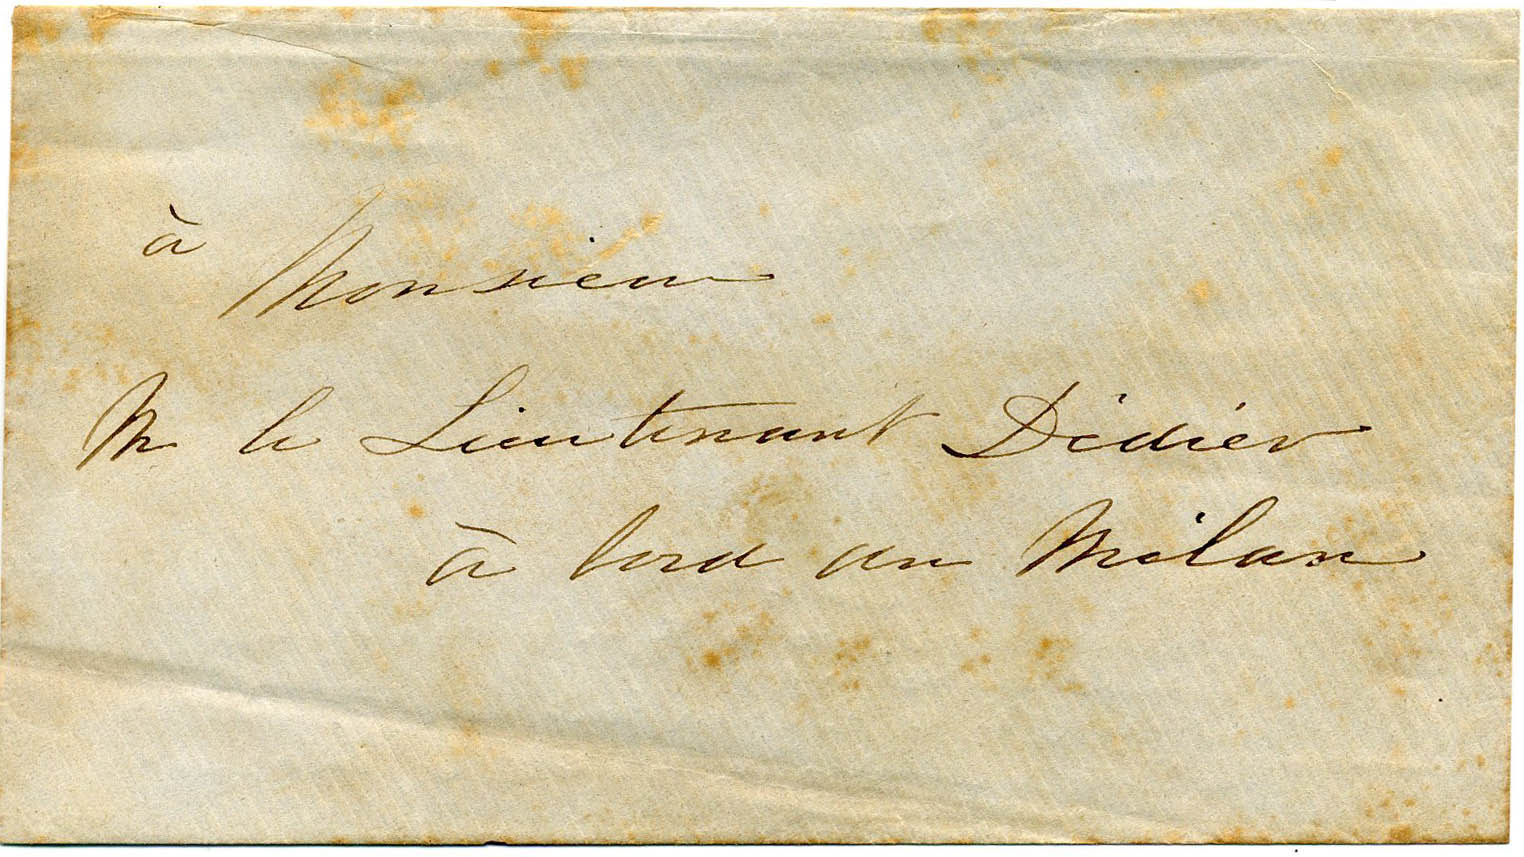 à Monsieur
M le Lieutenant Didier
à bord du Milan